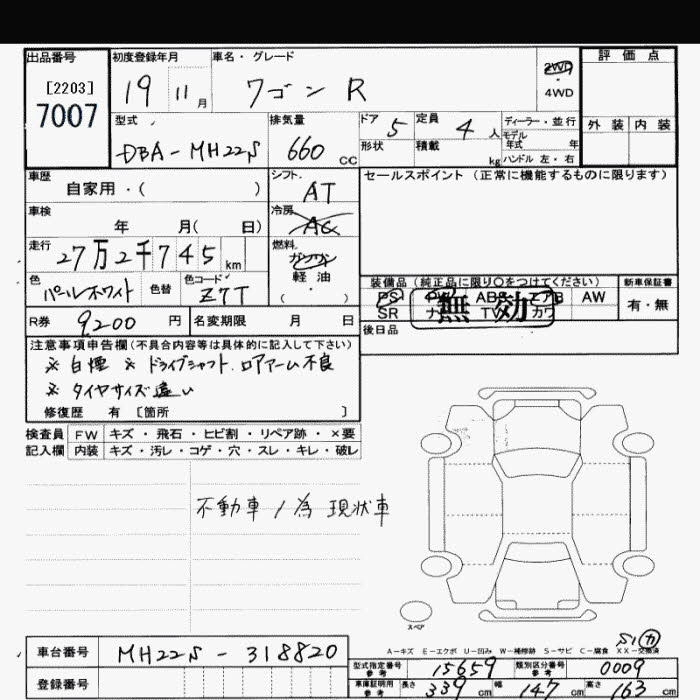 出品番号
[2203]
7007
初度登録年月
19 11 月
車名・グレード
ワゴン R
2WD
4WD
評価点
外装 内装
型式
DBA-MH22S
排気量
660 CC
ドア 5
定員 4 人
形状
積載 kg
ディーラー・並行
モデル年式 年
ハンドル 左・右
車歴
自家用・( )
シフト
AT
セールスポイント (正常に機能するものに限ります)
車検
年 月( 日)
冷房
AC
走行
27万2千745 km
燃料
ガソリン
軽・油
( )
色
パールホワイト
色替
色コード
Z7T
装備品 (純正品に限り○をつけてください)
PS PW ABS エアB AW
SR ナビ TV カワ
無効
新車保証書
有・無
R券 9200 円
名変期限 月 日
後日品
注意事項申告欄(不具合内容等は具体的に記入して下さい)
※白煙 ※ドライブシャフト.ロアアーム不良
※タイヤサイズ違い
修復歴 有 [箇所 ]
検査員 FW キズ・飛石・ヒビ割・リペア跡・×要
記入欄 内装 キズ・汚レ・コゲ・穴・スレ・キレ・破レ
不動車/為 現状車
スペア
A-キズ E-エクボ U-凹み W-補修跡 S-サビ C-腐食 XX-交換済
S1 カ
車台番号 MH22S-318820
登録番号
型式指定番号 参考 15659
類別区分番号 参考 0009
車庫証明用 参考 長さ 339 cm 幅 147 cm 高さ 163 cm